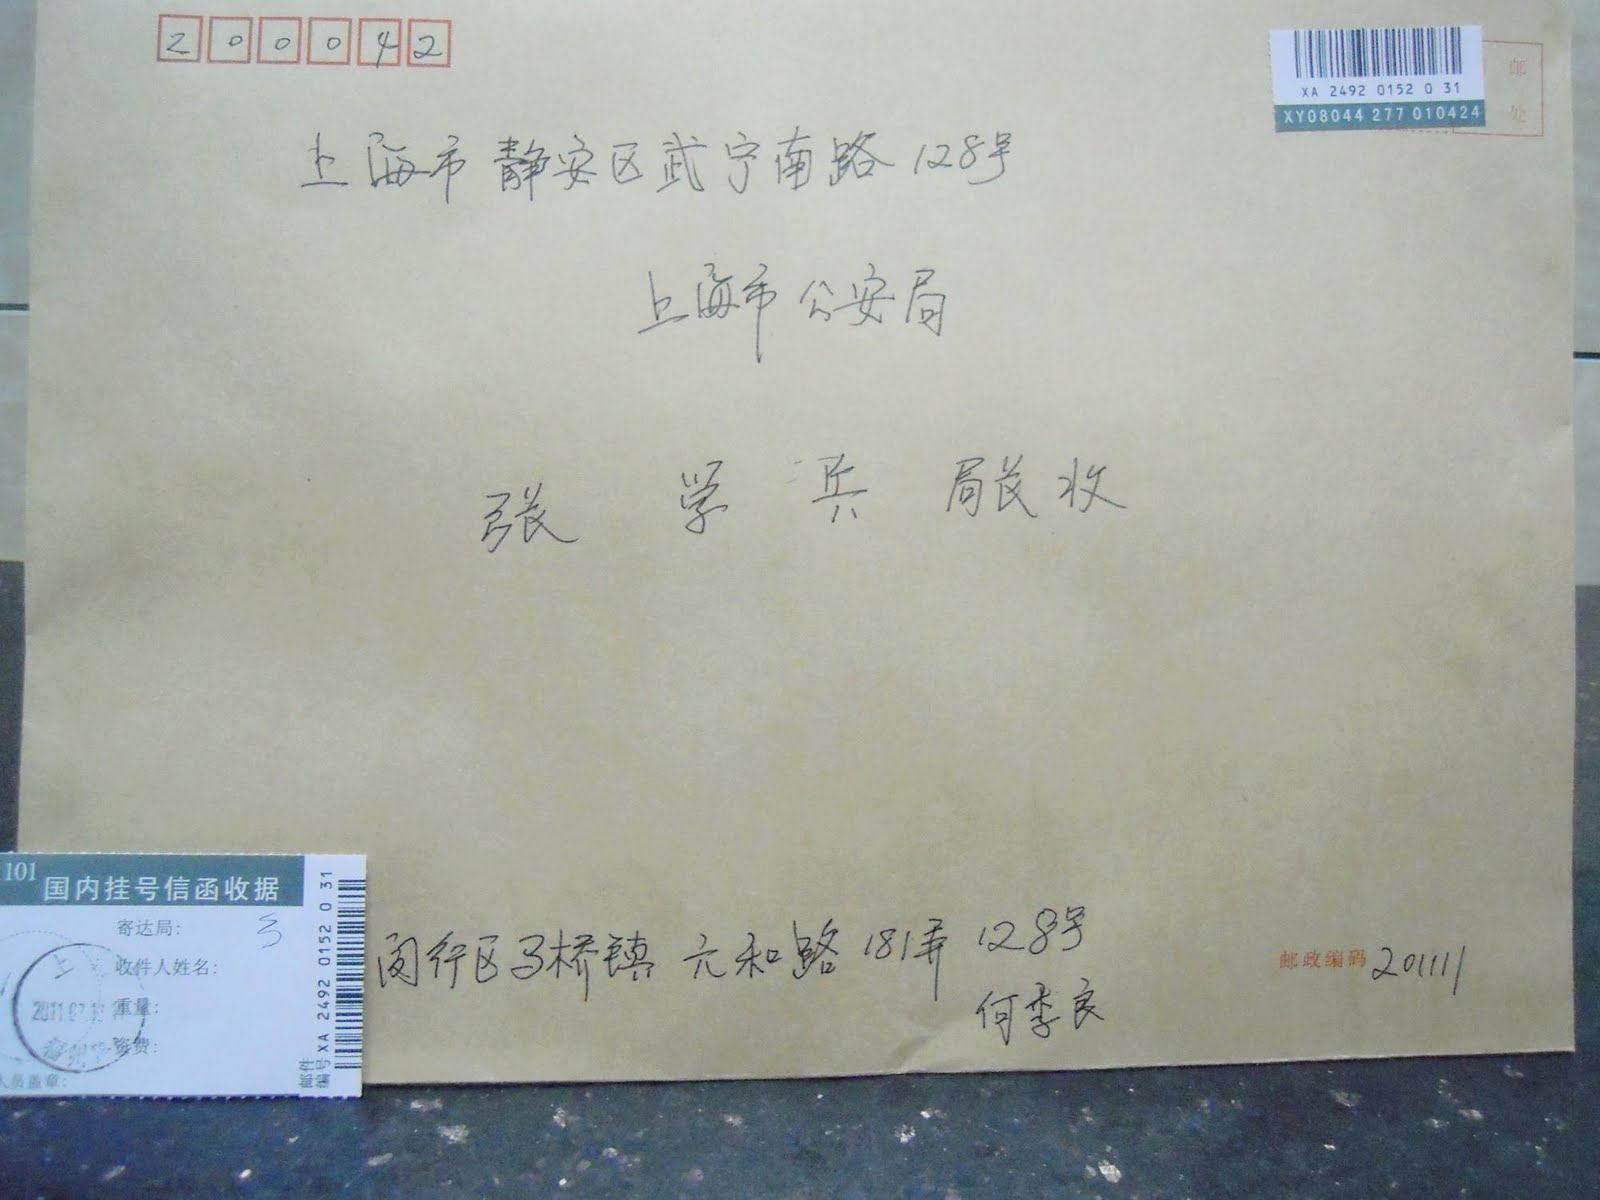 200042
XA 2492 0152 0 31
XY08044 277 010424
邮
处
上海市静安区武宁南路128号
上海市公安局
张学兵局长收
101
国内挂号信函收据
寄达局：
收件人姓名：
重量：
资费：
人员盖章：
邮件
编号 XA 2492 0152 0 31
闵行区马桥镇元和路181弄128号
何季良
邮政编码 201111